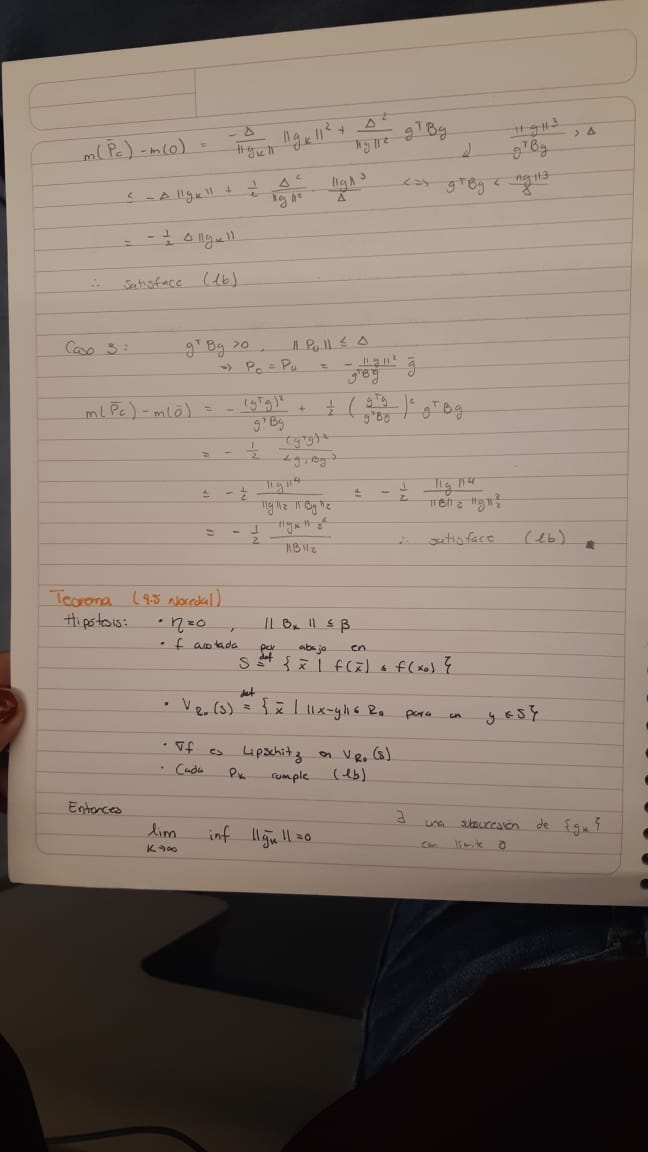 m(P̄c) - m(0) = -Δ/‖gₖ‖ ‖gₖ‖² + Δ²/‖g‖² gᵀBg ‖g‖³/gᵀBg > Δ
≤ -Δ‖gₖ‖ + 1/2 Δ²/‖g‖² ‖g‖³/Δ <=> gᵀBg < ‖g‖³/Δ
= - 1/2 Δ‖gₖ‖
∴ satisface (lb)
Caso 3: gᵀBg >0, ‖Pᵤ‖ ≤ Δ
⇒ Pc = Pᵤ = - ‖g‖²/gᵀBg ḡ
m(P̄c) - m(0̄) = - (gᵀg)²/gᵀBg + 1/2 (gᵀg/gᵀBg)² gᵀBg
= - 1/2 (gᵀg)²/<g, Bg>
≤ - 1/2 ‖g‖⁴/‖g‖₂ ‖Bg‖₂ ≤ - 1/2 ‖g‖⁴/‖B‖₂ ‖g‖₂²
= - 1/2 ‖gₖ‖₂²/‖B‖₂ ∴ satisface (lb) ■
Teorema (4.5 Nocedal)
Hipótesis: • η=0, ‖Bₖ‖ ≤ β
• f acotada por abajo en
S def= { x̄ | f(x̄) ≤ f(x₀) }
• V_R₀(S) def= { x̄ | ‖x-y‖ ≤ R₀ para un y ∈ S }
• ∇f es Lipschitz en V_R₀(S)
• Cada Pₖ cumple (lb)
Entonces
lim inf ‖ḡₖ‖ = 0
k→∞
∃ una subsucesión de {gₖ}
con límite 0